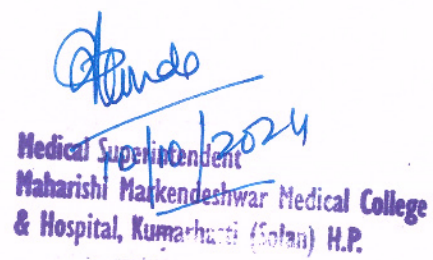 10/10/2024
Medical Superintendent
Maharishi Markendeshwar Medical College
& Hospital, Kumarhatti (Solan) H.P.